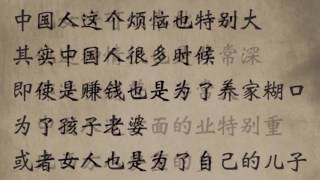 中国人这个烦恼也特别大
其实中国人很多时候常深
即使是赚钱也是为了养家糊口
为了孩子老婆面的业特别重
或者女人也是为了自己的儿子